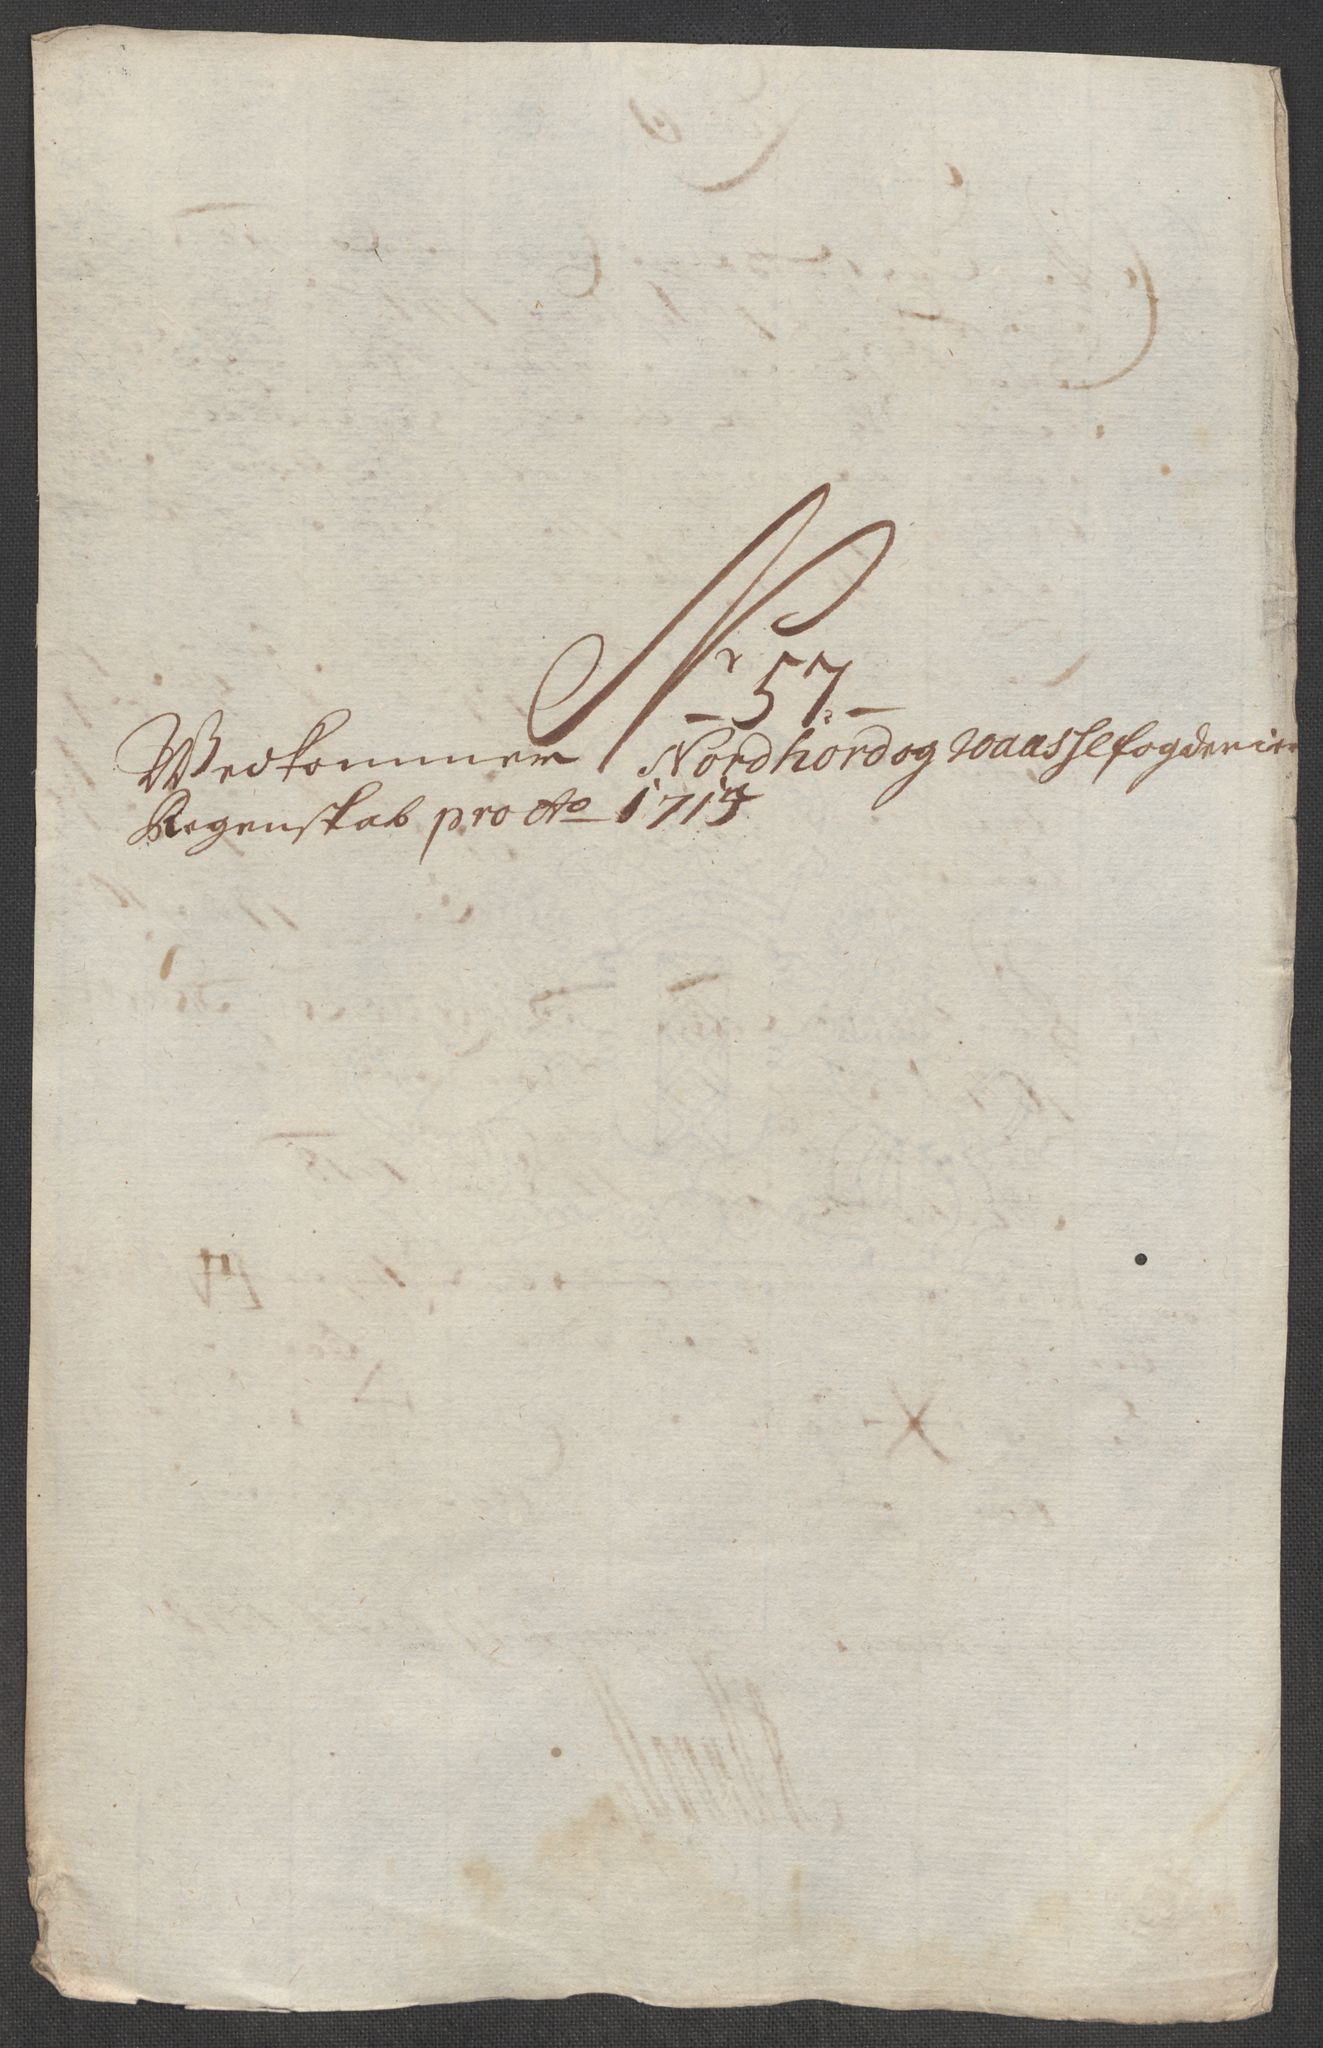 Nr 57
Wedkommer Nordhord og Waasse fogderier
Regenskab pro Ao 1714